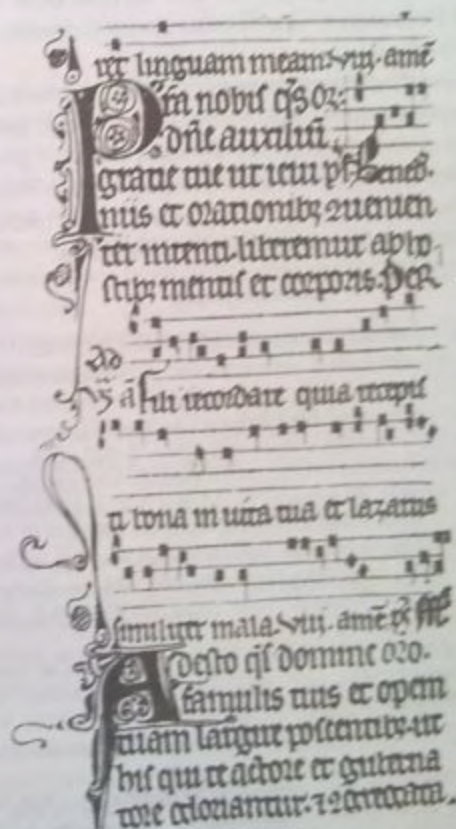 ret linguam meam. viij. amē
Pſta nobiſ qſ oī:
dn̄e auxiliū.
gratie tue ut ieiu pſ̄ Bened.
nijs et orationibꝫ ꝯuenien
ter intenti. liberemur ab ho
ſtibꝫ mentiſ et corporis. Per.
Ad
a fili recordare quia recepiſ
ti bona in uita tua et lazarus
ſimiliter mala. viij. amē
Adesto qſ domine
famulis tuis et opem
tuam largire poſcentibꝫ. ut
hiſ qui te actore et guberna
tore gloriantur. ⁊